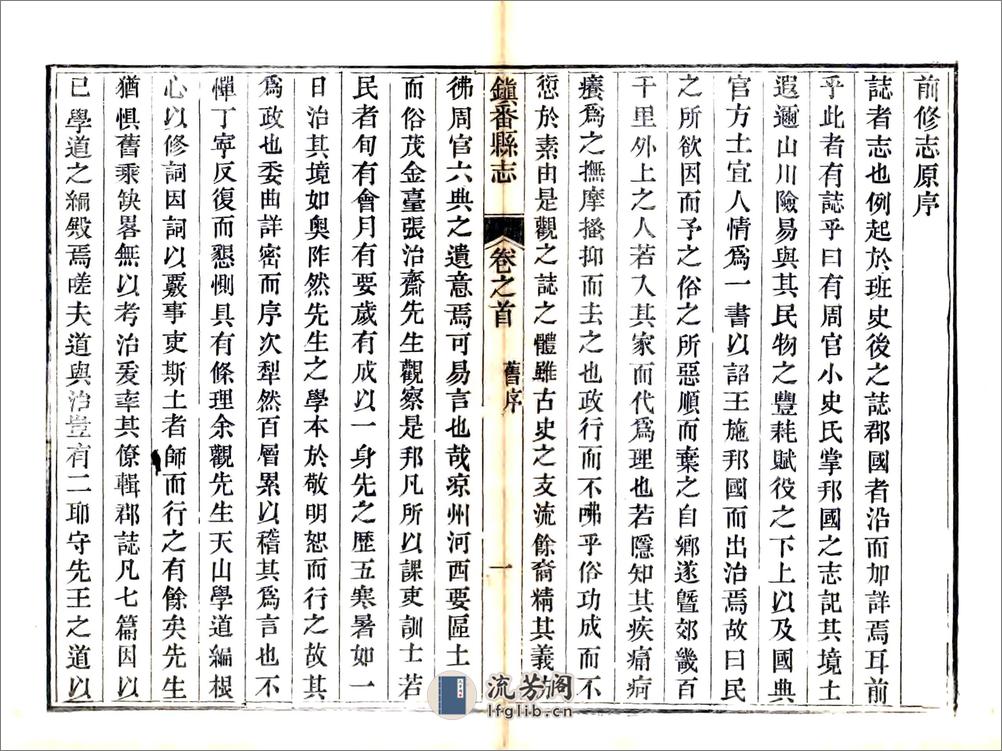 前修志原序
誌者志也例起於班史後之誌郡國者沿而加詳焉耳前
乎此者有誌乎曰有周官小史氏掌邦國之志記其境土
遐邇山川險易與其民物之豐耗賦役之下上以及國典
官方土宜人情爲一書以詔王施邦國而出治焉故曰民
之所欲因而予之俗之所惡順而棄之自鄉遂暨郊畿百
千里外上之人若入其家而代爲理也若隱知其疾痛疴
癢爲之撫摩搔抑而去之也政行而不咈乎俗功成而不
愆於素由是觀之誌之體雖古史之支流餘裔精其義
鎮番縣志
卷之首
舊序
一
彿周官六典之遺意焉可易言也哉凉州河西要區土
而俗茂金臺張治齋先生觀察是邦凡所以課吏訓士若
民者旬有會月有要歲有成以一身先之歷五寒暑如一
日治其境如奥阼然先生之學本於敬明恕而行之故其
爲政也委曲詳密而序次犁然百層累以稽其爲言也不
憚丁寧反復而懇惻具有條理余觀先生天山學道編根
心以修詞因詞以覈事吏斯土者師而行之有餘矣先生
猶惧舊乘缺畧無以考治爰率其僚輯郡誌凡七篇因以
已學道之編殿焉嗟夫道與治豈有二耶守先王之道以
流芳阁
lfglib.cn